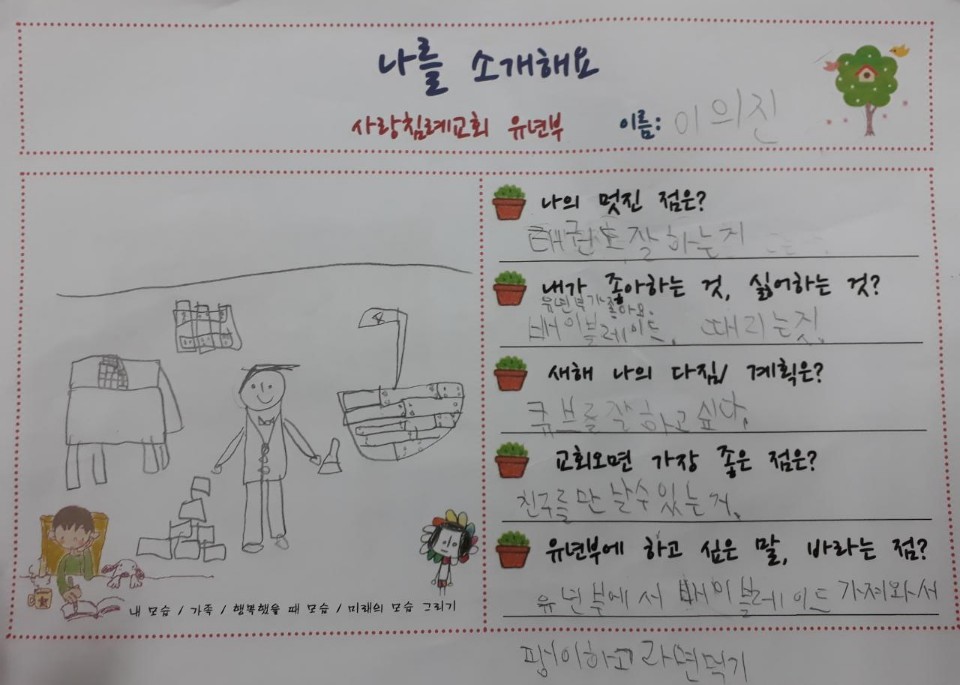 나를 소개해요
사랑침례교회 유년부 이름: 이의진
나의 멋진 점은?
태권도 잘하는지
내가 좋아하는 것, 싫어하는 것?
유년부가 좋아요.
베이블레이드, 때리는것
새해 나의 다짐/ 계획은?
큐브를 잘하고싶다.
교회오면 가장 좋은 점은?
친구를 만날수 있는거.
유년부에 하고 싶은 말, 바라는 점?
유년부에서 베이블레이드 가져와서
팽이하고 라면먹기
내 모습 / 가족 / 행복했을 때 모습 / 미래의 모습 그리기